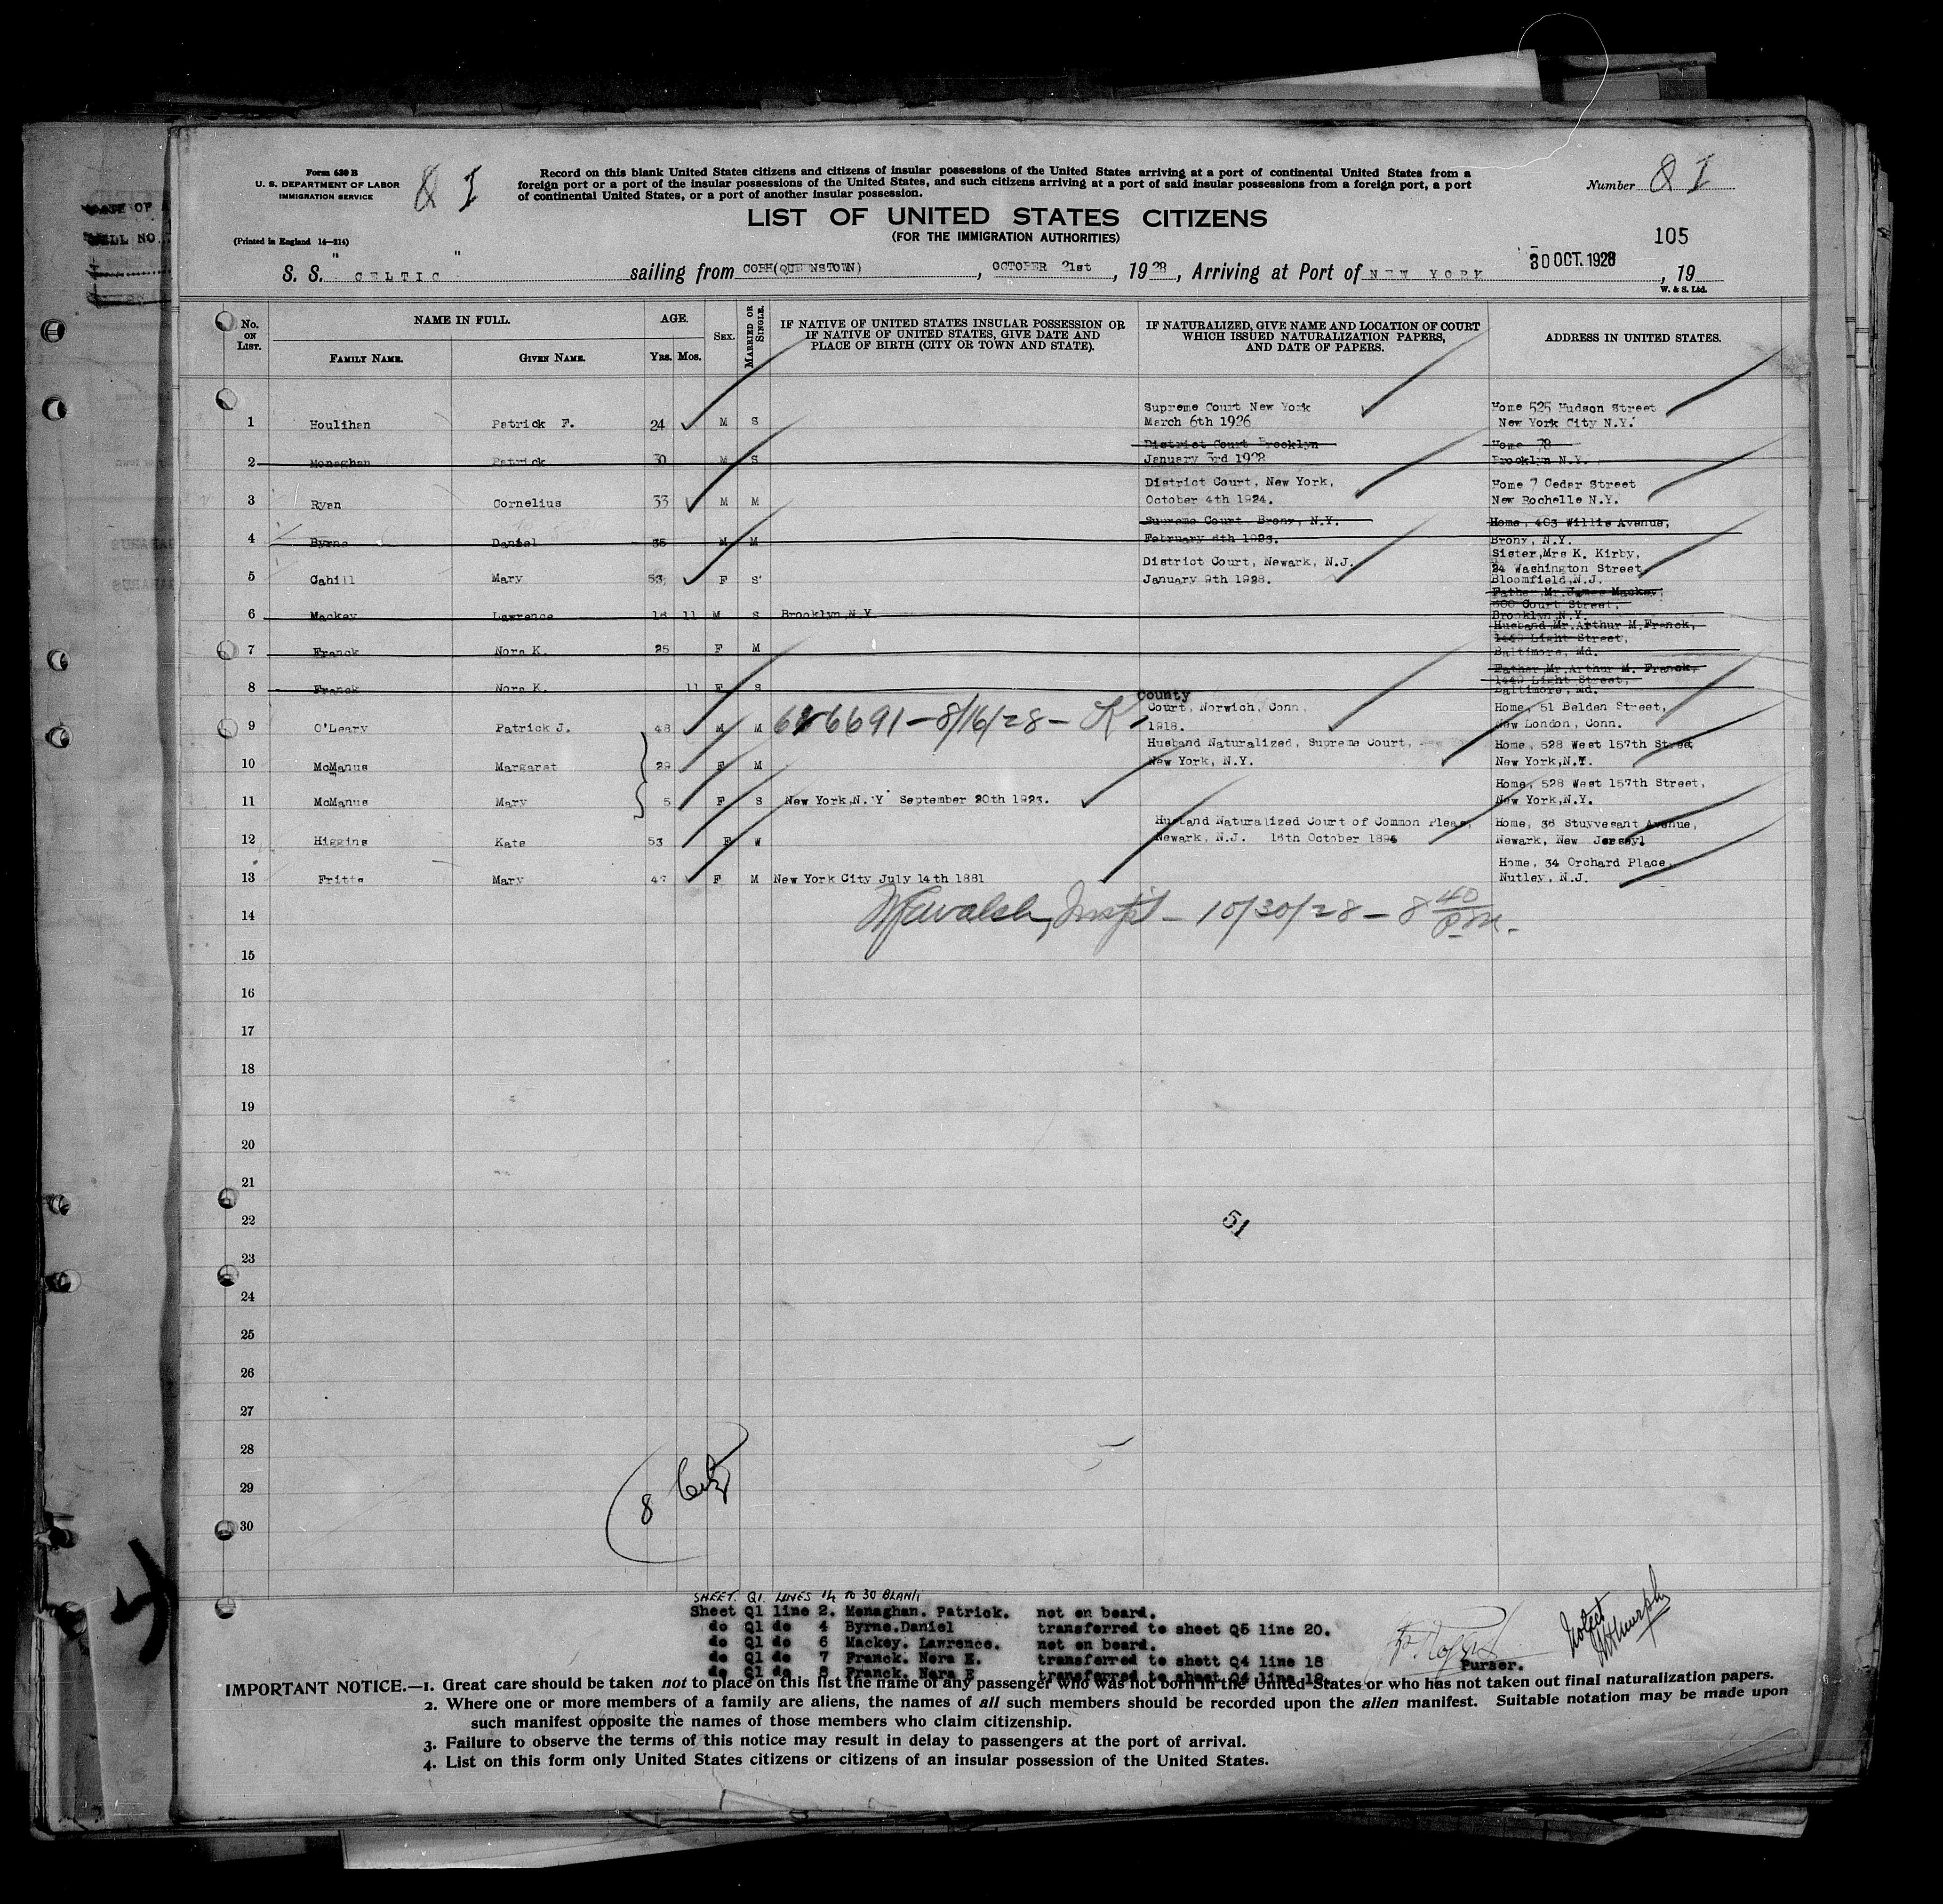 Form 630 B
U. S. DEPARTMENT OF LABOR
IMMIGRATION SERVICE
Q I
Record on this blank United States citizens and citizens of insular possessions of the United States arriving at a port of continental United States from a
foreign port or a port of the insular possessions of the United States, and such citizens arriving at a port of said insular possessions from a foreign port, a port
of continental United States, or a port of another insular possession.
Number Q I
LIST OF UNITED STATES CITIZENS
(FOR THE IMMIGRATION AUTHORITIES)
(Printed in England 14—214)
105
S. S. "CELTIC" sailing from COBH(QUEENSTOWN), OCTOBER 21st, 1928, Arriving at Port of NEW YORK 30 OCT. 1928, 19
W. & S. Ltd.
No. ON LIST.
NAME IN FULL.
FAMILY NAME.
GIVEN NAME.
AGE.
YRS. MOS.
SEX.
MARRIED OR SINGLE.
IF NATIVE OF UNITED STATES INSULAR POSSESSION OR
IF NATIVE OF UNITED STATES, GIVE DATE AND
PLACE OF BIRTH (CITY OR TOWN AND STATE).
IF NATURALIZED, GIVE NAME AND LOCATION OF COURT
WHICH ISSUED NATURALIZATION PAPERS,
AND DATE OF PAPERS.
ADDRESS IN UNITED STATES.
Supreme Court New York Home 525 Hudson Street
1 Houlihan Patrick F. 24 M S March 6th 1926 New York City N.Y.
District Court Brooklyn Home 78
2 Monaghan Patrick 30 M S January 3rd 1928 Brooklyn N.Y.
District Court, New York, Home 7 Cedar Street
3 Ryan Cornelius 33 M M October 4th 1924. New Rochelle N.Y.
Supreme Court Bronx, N.Y. Home, 403 Willis Avenue,
4 Byrne Daniel 35 M M February 6th 1923. Bronx, N.Y.
Sister, Mrs K. Kirby,
District Court, Newark, N.J. 24 Washington Street
5 Cahill Mary 53 F S January 9th 1928. Bloomfield, N.J.
Father Mr. James Mackey,
500 Court Street,
6 Mackey Lawrence 18 11 M S Brooklyn N.Y. Brooklyn N.Y.
Husband Mr. Arthur M. Franck,
1440 Light Street,
7 Franck Nora K. 25 F M Baltimore, Md.
Father Mr. Arthur M. Franck,
1440 Light Street,
8 Franck Nora K. 11 F S Baltimore, Md.
County
Court, Norwich, Conn. Home, 51 Belden Street,
9 O'Leary Patrick J. 48 M M 626691 - 8/16/28 - 1918. New London, Conn.
Husband Naturalized, Supreme Court, Home, 528 West 157th Street
10 McManus Margaret 29 F M New York, N.Y. New York, N.Y.
Home, 528 West 157th Street,
11 McManus Mary 5 F S New York, N. Y September 20th 1923. New York, N.Y.
Husband Naturalized Court of Common Pleas, Home, 36 Stuyvesant Avenue,
12 Higgins Kate 53 F W Newark, N.J. 16th October 1894 Newark, New Jersey
Home, 34 Orchard Place,
13 Fritts Mary 47 F M New York City July 14th 1881 Nutley, N.J.
Walsh, Insp'r - 10/30/28 - 8 40 P.M.
14
15
16
17
18
19
20
21
22
51
23
24
25
26
27
28
29
30
8
SHEET. Q1. LINES 14 TO 30 BLANK
Sheet Q1 line 2. Monaghan. Patrick. not on board.
do Q1 do 4 Byrne.Daniel transferred to sheet Q5 line 20.
do Q1 do 6 Mackey. Lawrence. not on board.
do Q1 do 7 Franck. Nora E. transferred to shett Q4 line 18
do Q1 do 8 Franck. Nora E transferred to sheet Q4 line 19.
Purser.
IMPORTANT NOTICE.—1. Great care should be taken not to place on this list the name of any passenger who was not born in the United States or who has not taken out final naturalization papers.
2. Where one or more members of a family are aliens, the names of all such members should be recorded upon the alien manifest. Suitable notation may be made upon
such manifest opposite the names of those members who claim citizenship.
3. Failure to observe the terms of this notice may result in delay to passengers at the port of arrival.
4. List on this form only United States citizens or citizens of an insular possession of the United States.